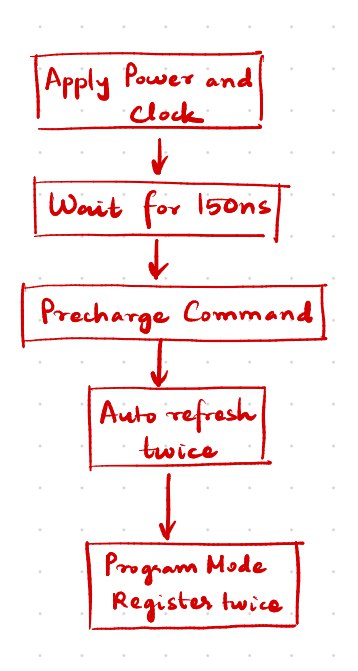 Apply Power and
Clock
Wait for 150ns
Precharge Command
Auto refresh
twice
Program Mode
Register twice